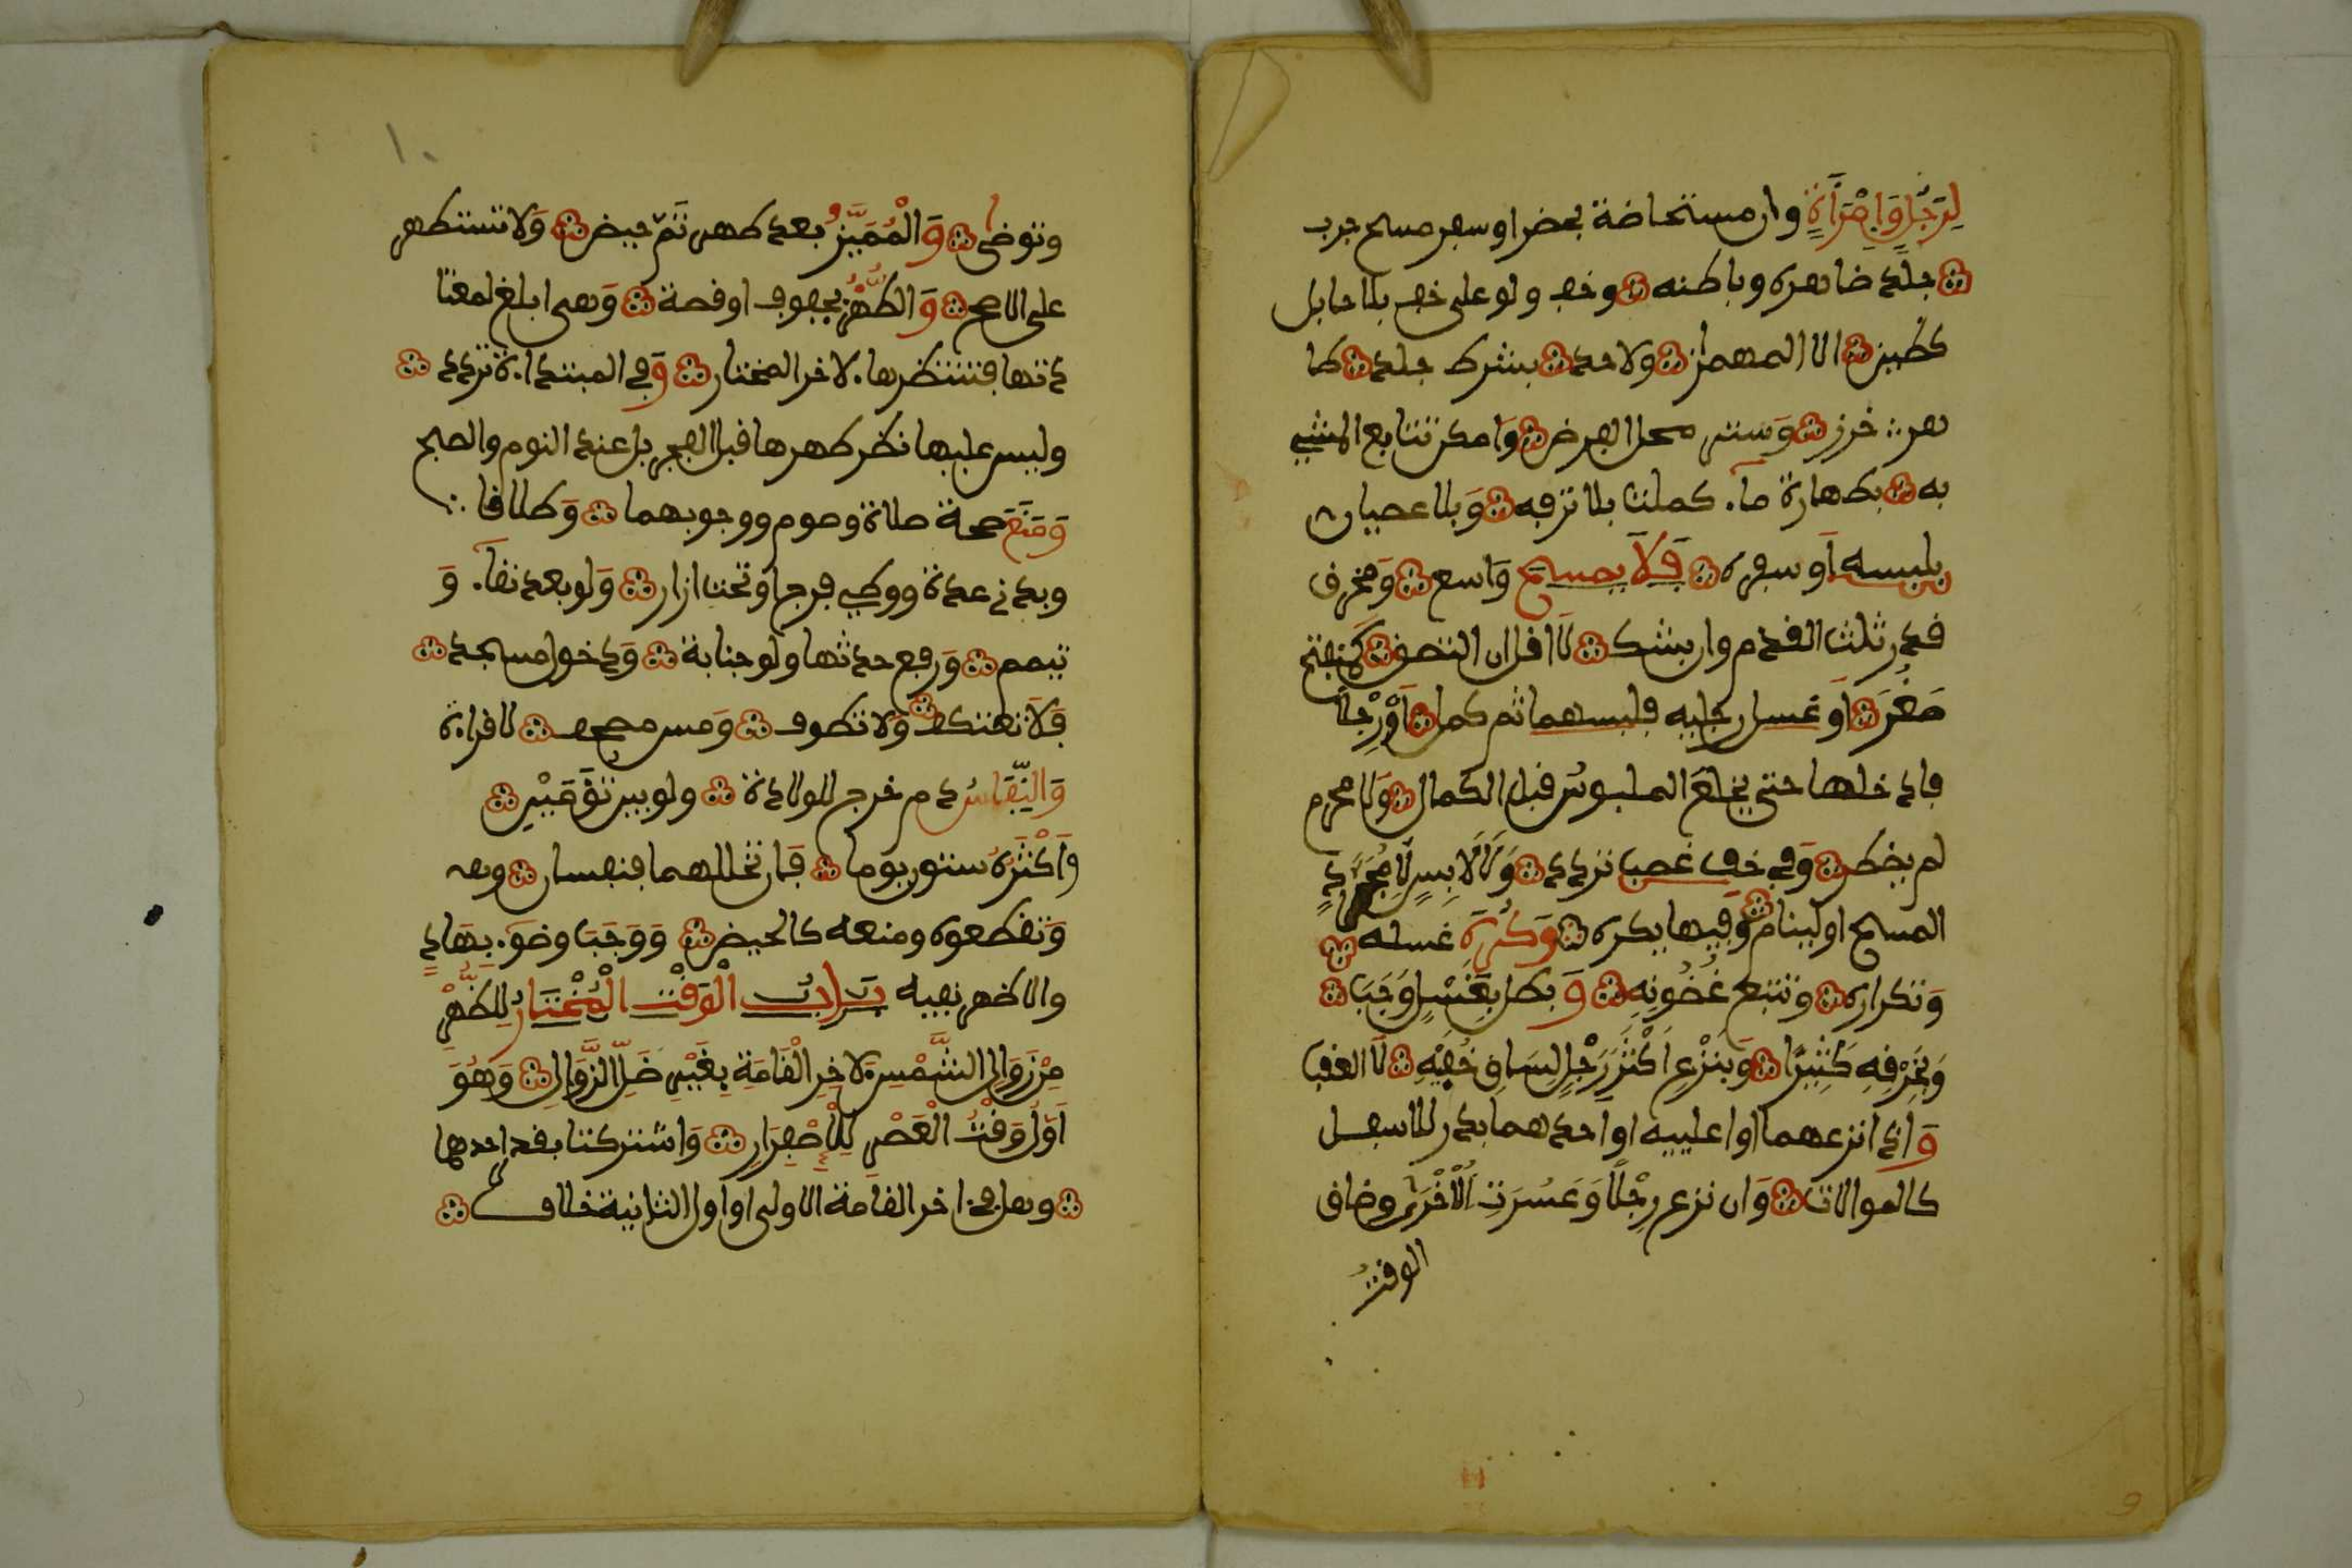 لِرَجُلٍ وَامْرَأَةٍ وان مستحاضة بحضر او سفر مسح جورب
جلد ظاهره وباطنه وخف ولو على خف بلا حايل
كطين الا المهماز ولا حد بشرط جلد طا
هر خرز وَستر محل الفرض وَامكن تتابع المشي
به بطهارة ماء كملت بلا ترفه وَبلا عصيان
بلبسه اَو سفره فَلَا يمسح وَاسع وَمخرق
قدر ثلث القدم وان بشك لَا اقل ان التصق كَمنفتح
صَغُرَ اَو غسل رجليه فلبسهما ثم كمل اَوْ رِجْلًا
فادخلها حتى يخلعَ الملبوسَ قبل الكمال وَلا محرم
لم يضطر وَفي خف غصب تردد وَلَا لَابِسٍ لِمُجَرَّدِ
المسح او لينام وَفيها يكره وَكُرِهَ غسله
وَتكراره وتتبع غُضُونِهِ وَ بطل بِغُسْلٍ وَجَبَ
وَبِخَرْقِهِ كَثِيرًا وَبِنَزْعِ اَكْثَرِ رِجْلٍ لِسَاقِ خُفِّهِ لَا العقب
وَ اذا نزعهما او اعلييه اَو احدهما بدر للاسفل
كالموالات وَان نزع رِجْلًا وَعَسُرَتِ الْاُخْرَى وضاق
الوقت
١٠
وتوضى وَالْمُمَيَّزُ بعد طهر تَمَّ حيض وَلا تستطهر
على الاصح وَالطُّهْرُ بجفوف او قصة وَهى ابلغ لمعتا
دتها فتنتظرها لاخر المختار وَفي المبتداءة تردد
وليس عليها نظر طهرها قبل الفجر بل عند النوم والصبح
وَمَنَعَ صحة صلاة وصوم ووجوبهما وَطلاقا
وبدء عدة ووطي فرج او تحت ازار وَلو بعد نقاء وَ
تيمم وَرفع حدثها ولو جنابة وَدخول مسجد
فَلَا تعتكف وَلا تطوف وَمس مصحف لا قراءة
وَالنِّفَاسُ دم خرج للولادة ولو بين تَوْءَمَيْنِ
وَاَكْثَرُهُ ستون يوما فَان تخللهما فنفسان وهـ
وَتقطعوه ومنعه كالحيض وَوَجَبَ وضوء بِهَادٍ
والاظهر نفيه بَابُ الْوَقْتُ الْمُخْتَارُ لِلظُّهْرِ
مِنْ زَوَالِ الشَّمْسِ لاخِرِ الْقَامَةِ بِغَيْرِ ظَلِّ الزَّوَالِ وَهُوَ
اَوَّلُ وَقْتِ الْعَصْرِ لِلِاصْفِرَارِ وَاشتركتا بقدر احدهما
وهل في اخر القامة الاولى او اول الثانية خلاف